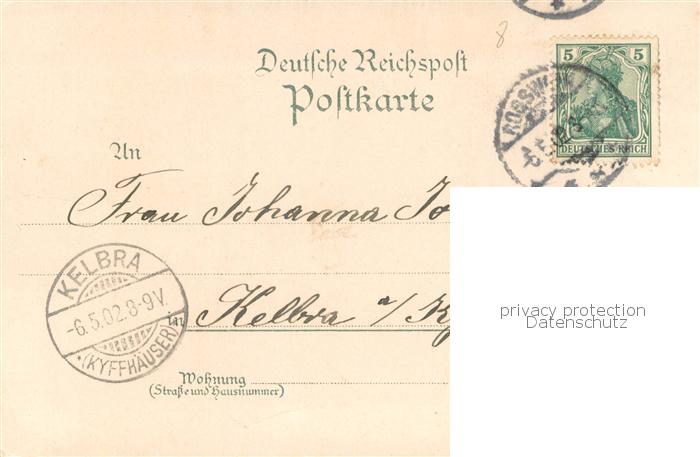 8
Deutsche Reichspost
Postkarte
5 5
DEUTSCHES REICH
An
Frau Johanna
KELBRA
-6.5.02.8-9V.
(KYFFHÄUSER)
in Kelbra a/
Wohnung
(Straße und Hausnummer)
privacy protection
Datenschutz